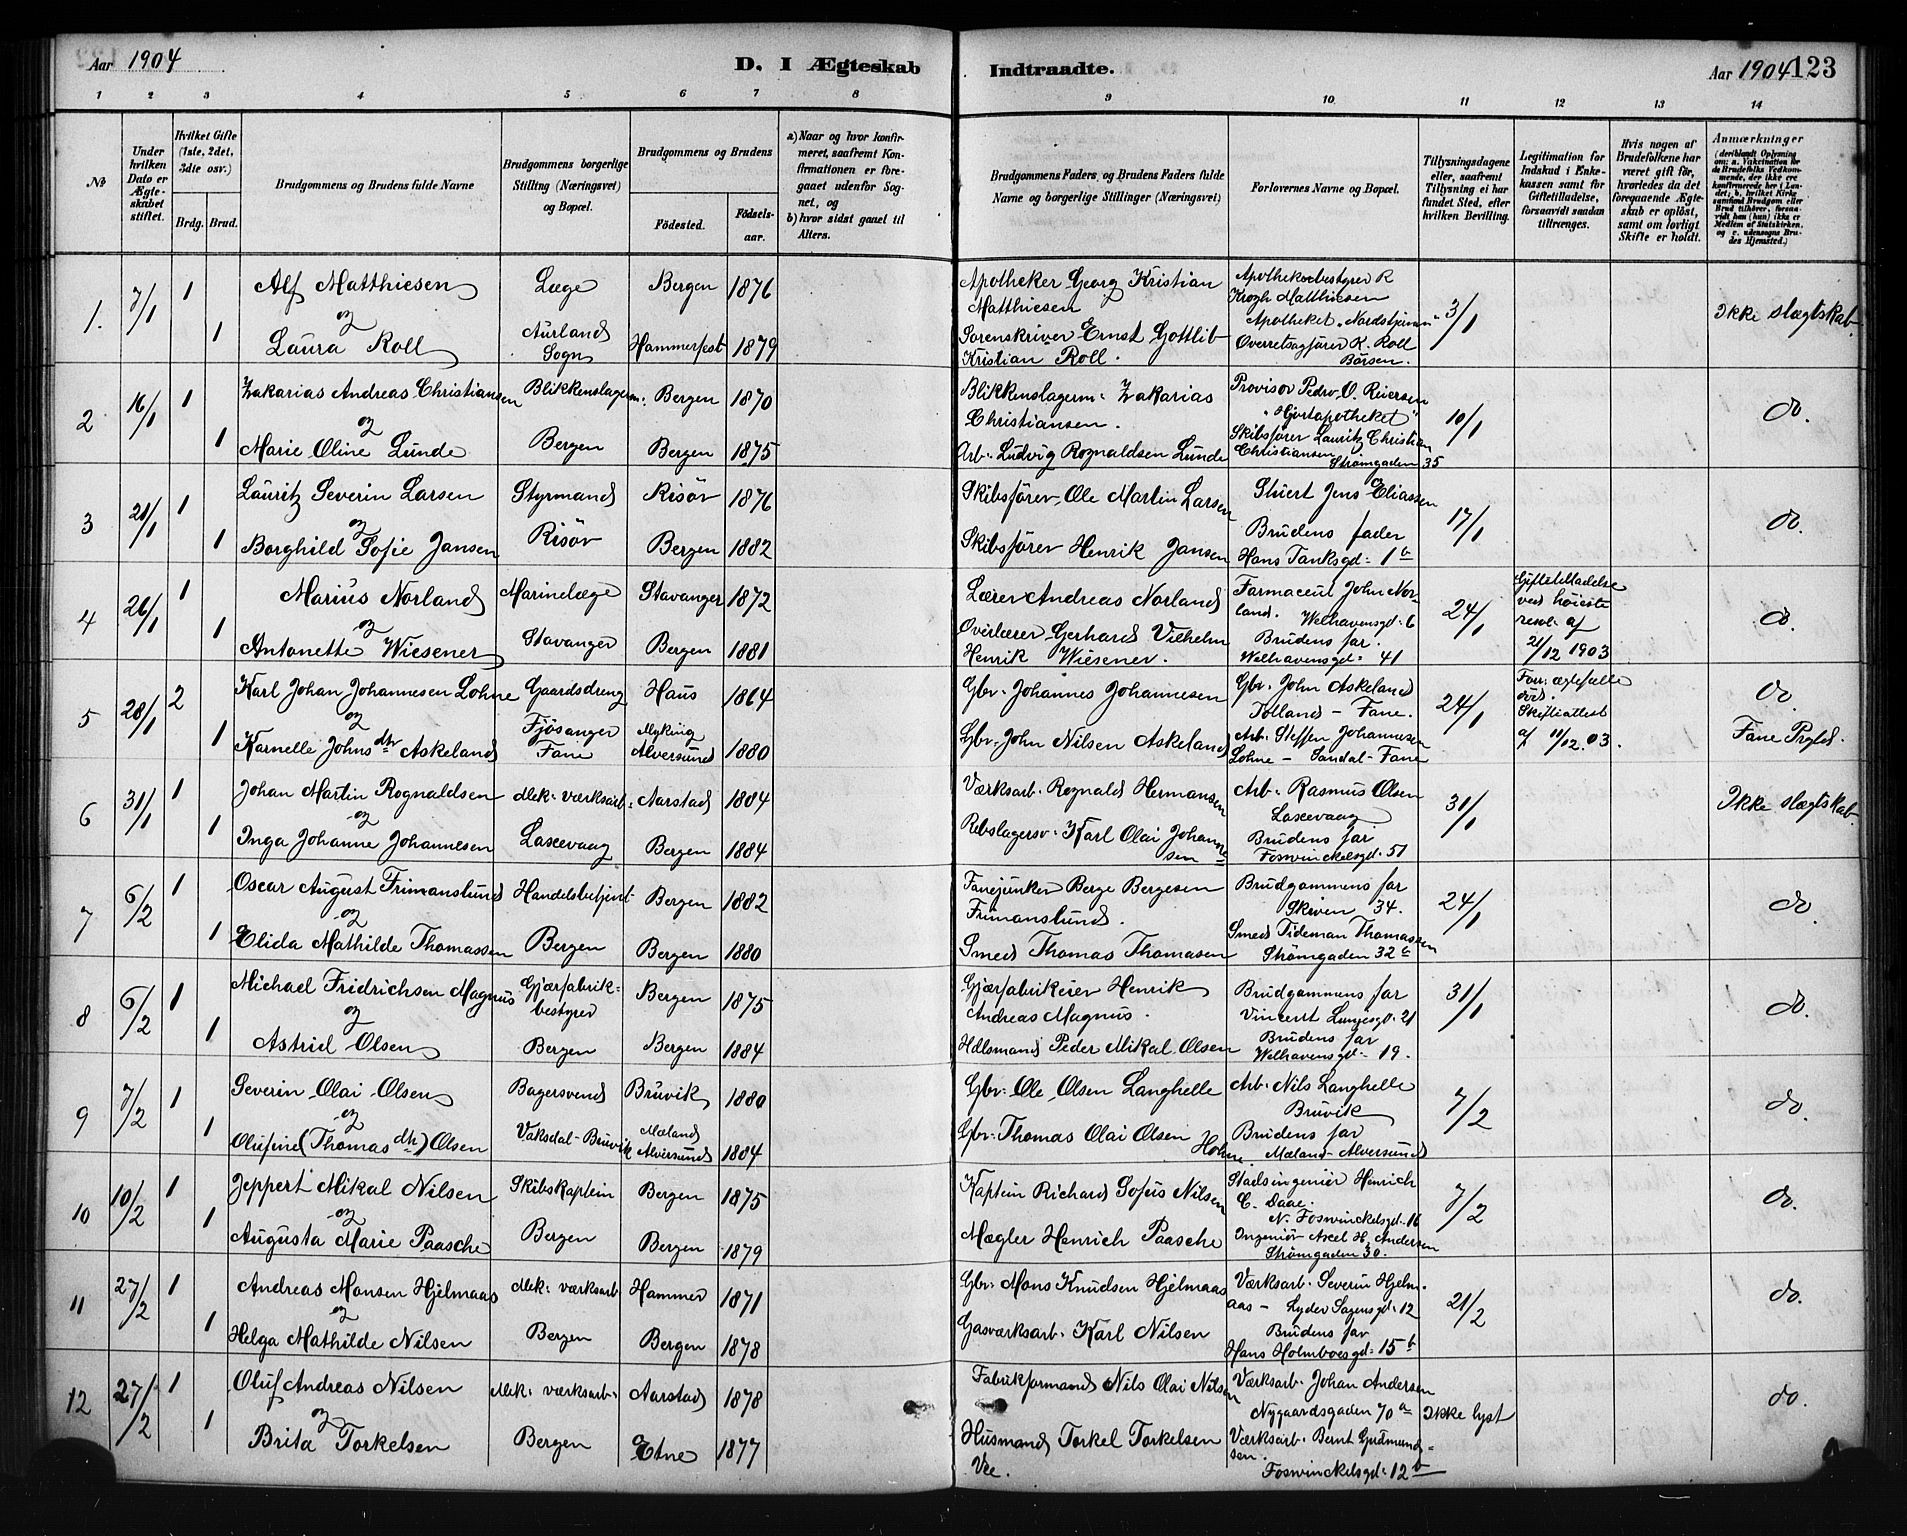 Aar 1904
D. I Ægteskab Indtraadte.
Aar 1904 123
1 2 3 4 5 6 7 8 9 10 11 12 13 14
No
Under hvilken Dato er Ægteskabet stiftet.
Hvilket Gifte (1ste, 2det, 3die osv.)
Brdg. Brud.
Brudgommens og Brudens fulde Navne
Brudgommens borgerlige Stilling (Næringsvei) og Bopæl.
Brudgommens og Brudens
Födested.
Födsels-aar.
a) Naar og hvor konfirmeret, saafremt Konfirmationen er foregaaet udenfor Sognet, og
b) hvor sidst ganet til Alters.
Brudgommens Faders, og Brudens Faders fulde Navne og borgerlige Stillinger (Næringsvei)
Forlovernes Navne og Bopæl.
Tillysningsdagene eller, saafremt Tillysning ei har fundet Sted, efter hvilken Bevilling.
Legitimation for Indskud i Enkekassen samt för Giftetilladelse, forsaavidt saadan tiltrænges.
Hvis nogen af Brudefolkene har været gift för, hvorledes da det foregaaende Ægteskab er oplöst, samt om lovligt Skifte er holdt.
Anmærkninger
(deriblandt Oplysning om: a. Vakcination for de Brudefolks Vedkommende, der ikke ere konfirmerede her i Landet; b. hvilket Kirkesamfund Brudgom eller Brud tilhörer, forsaavidt han (hun) ikke er Medlem af Statskirken, og c. udensogns Brudes Hjemsted.)
1. 7/1 1 Alf Matthiesen Læge Bergen 1876 Apotheker Georg Kristian Matthiesen
og
1 Laura Roll Aurland Sogn Hammerfest 1879 Sorenskriver Ernst Gottlib Kristian Roll.
Apothekerbestyrer R Krogh Matthiesen Apotheket "Nordstjernen"
Overretsagfører K. Roll Børsen.
3/1 Ikke slægtskab.
2 16/1 1 Zakarias Andreas Christiansen Blikkenslagerm: Bergen 1870 Blikkenslagerm: Zakarias Christiansen.
og
1 Marie Oline Lunde Bergen Bergen 1875 Arb: Ludvig Rognaldsen Lunde
Provisor Pedro O. Reiersen "Hjortapotheket"
Skibsfører Lauritz Christian Christiansen Strømgaden 35
10/1 do.
3 21/1 1 Lauritz Severin Larsen Styrmand Risør 1876 Skibsfører Ole Martin Larsen
og
1 Borghild Sofie Jansen Risør Bergen 1882 Skibsfører Henrik Jansen
Stuert Jens Eliassen
Brudens fader Hans Tanksgd: 1b
17/1 do.
4 26/1 1 Marius Norland Marinelæge Stavanger 1872 Lærer Andreas Norland
og
1 Antonette Wiesener Stavanger Bergen 1881 Overlærer Gerhard Vilhelm Henrik Wiesener.
Farmaceut John Norland. Welhavensgd: 6
Brudens far. Welhavensgd: 41
24/1 Giftetilladelse ved høieste resol: af 21/12 1903 do.
5 28/1 2 Karl Johan Johannesen Lohne Gaardsdreng Haus 1864 Gbr. Johannes Johannesen
og
1 Karnelle Johnsdtr Askeland Fjøsanger Fane Myking Alversund 1880 Gbr. John Nilsen Askeland
Gbr. John Askeland Tolland - Fane.
Arb. Steffen Johannesen Lohne - Sandal - Fane
24/1 Forr: ægtefælle død. Skifteattest af 11/12.03. do.
Fane Prgld.
6 31/1 1 Johan Martin Rognaldsen Mek: værksarb: Aarstad 1884 Værksarb: Rognald Hermansen
og
1 Inga Johanne Johannesen Laxevaag Bergen 1884 Rebslagersv: Karl Olai Johannesen
Arb: Rasmus Olsen Laxevaag
Brudens far Foswinckelsgd: 51
31/1 Ikke slægtskab.
7 6/2 1 Oscar August Frimanslund Handelsbetjent Bergen 1882 Fanejunker Berge Bergesen Frimanslund.
og
1 Elida Mathilde Thomassen Bergen Bergen 1880 Smed Thomas Thomasen
Brudgommens far Skiven 34.
Smed Tideman Thomassen Strømgaden 32c
24/1 do.
8 6/2 1 Michael Fridrichsen Magnus Gjærfabrikbestyrer Bergen 1875 Gjærfabrikeier Henrik Andreas Magnus.
og
1 Astrid Olsen Bergen Bergen 1884 Hdlsmand Peder Mikal Olsen
Brudgommens far Vincent Lungesgd: 21
Brudens far Welhavensgd: 19.
31/1 do.
9 7/2 1 Severin Olai Olsen Bagersvend Bruvik 1880 Gbr. Ole Olsen Langhelle
og
1 Olufine (Thomasdtr) Olsen Vaksdal - Bruvik Mæland Alversund 1884 Gbr. Thomas Olai Olsen Holme.
Arb. Nils Langhelle Bruvik
Brudens far Mæland - Alversund
7/2 do.
10 10/2 1 Jeppert Mikal Nilsen Skibskaptein Bergen 1875 Kaptein Richard Sofus Nilsen
og
1 Augusta Marie Paasche Bergen Bergen 1879 Mægler Henrich Paasche
Stadsingeniør Hinrich C. Daae N. Foswinckelsgd: 16
Ingeniør Axel H. Andersen Strømgaden 30.
7/2 do.
11 27/2 1 Andreas Monsen Hjelmaas Mek: værksarb Hammer 1871 Gbr. Mons Knudsen Hjelmaas
og
1 Helga Mathilde Nilsen Bergen Bergen 1878 Gasværksarb. Karl Nilsen
Værksarb. Severin Hjelmaas - Lyder Sagensgd: 12
Brudens far Hans Holmboesgd: 15b
21/2 do.
12 27/2 1 Oluf Andreas Nilsen Mek: værksarb: Aarstad 1878 Fabrikformand Nils Olai Nilsen
og
1 Brita Torkelsen Bergen Etne 1877 Husmand Torkel Torkelsen Vee.
Værksarb. Johan Andersen Nygaardsgaden 70a
Værksarb. Bernt Gudmundsen. Foswinckelsgd: 12b
Ikke lyst do.